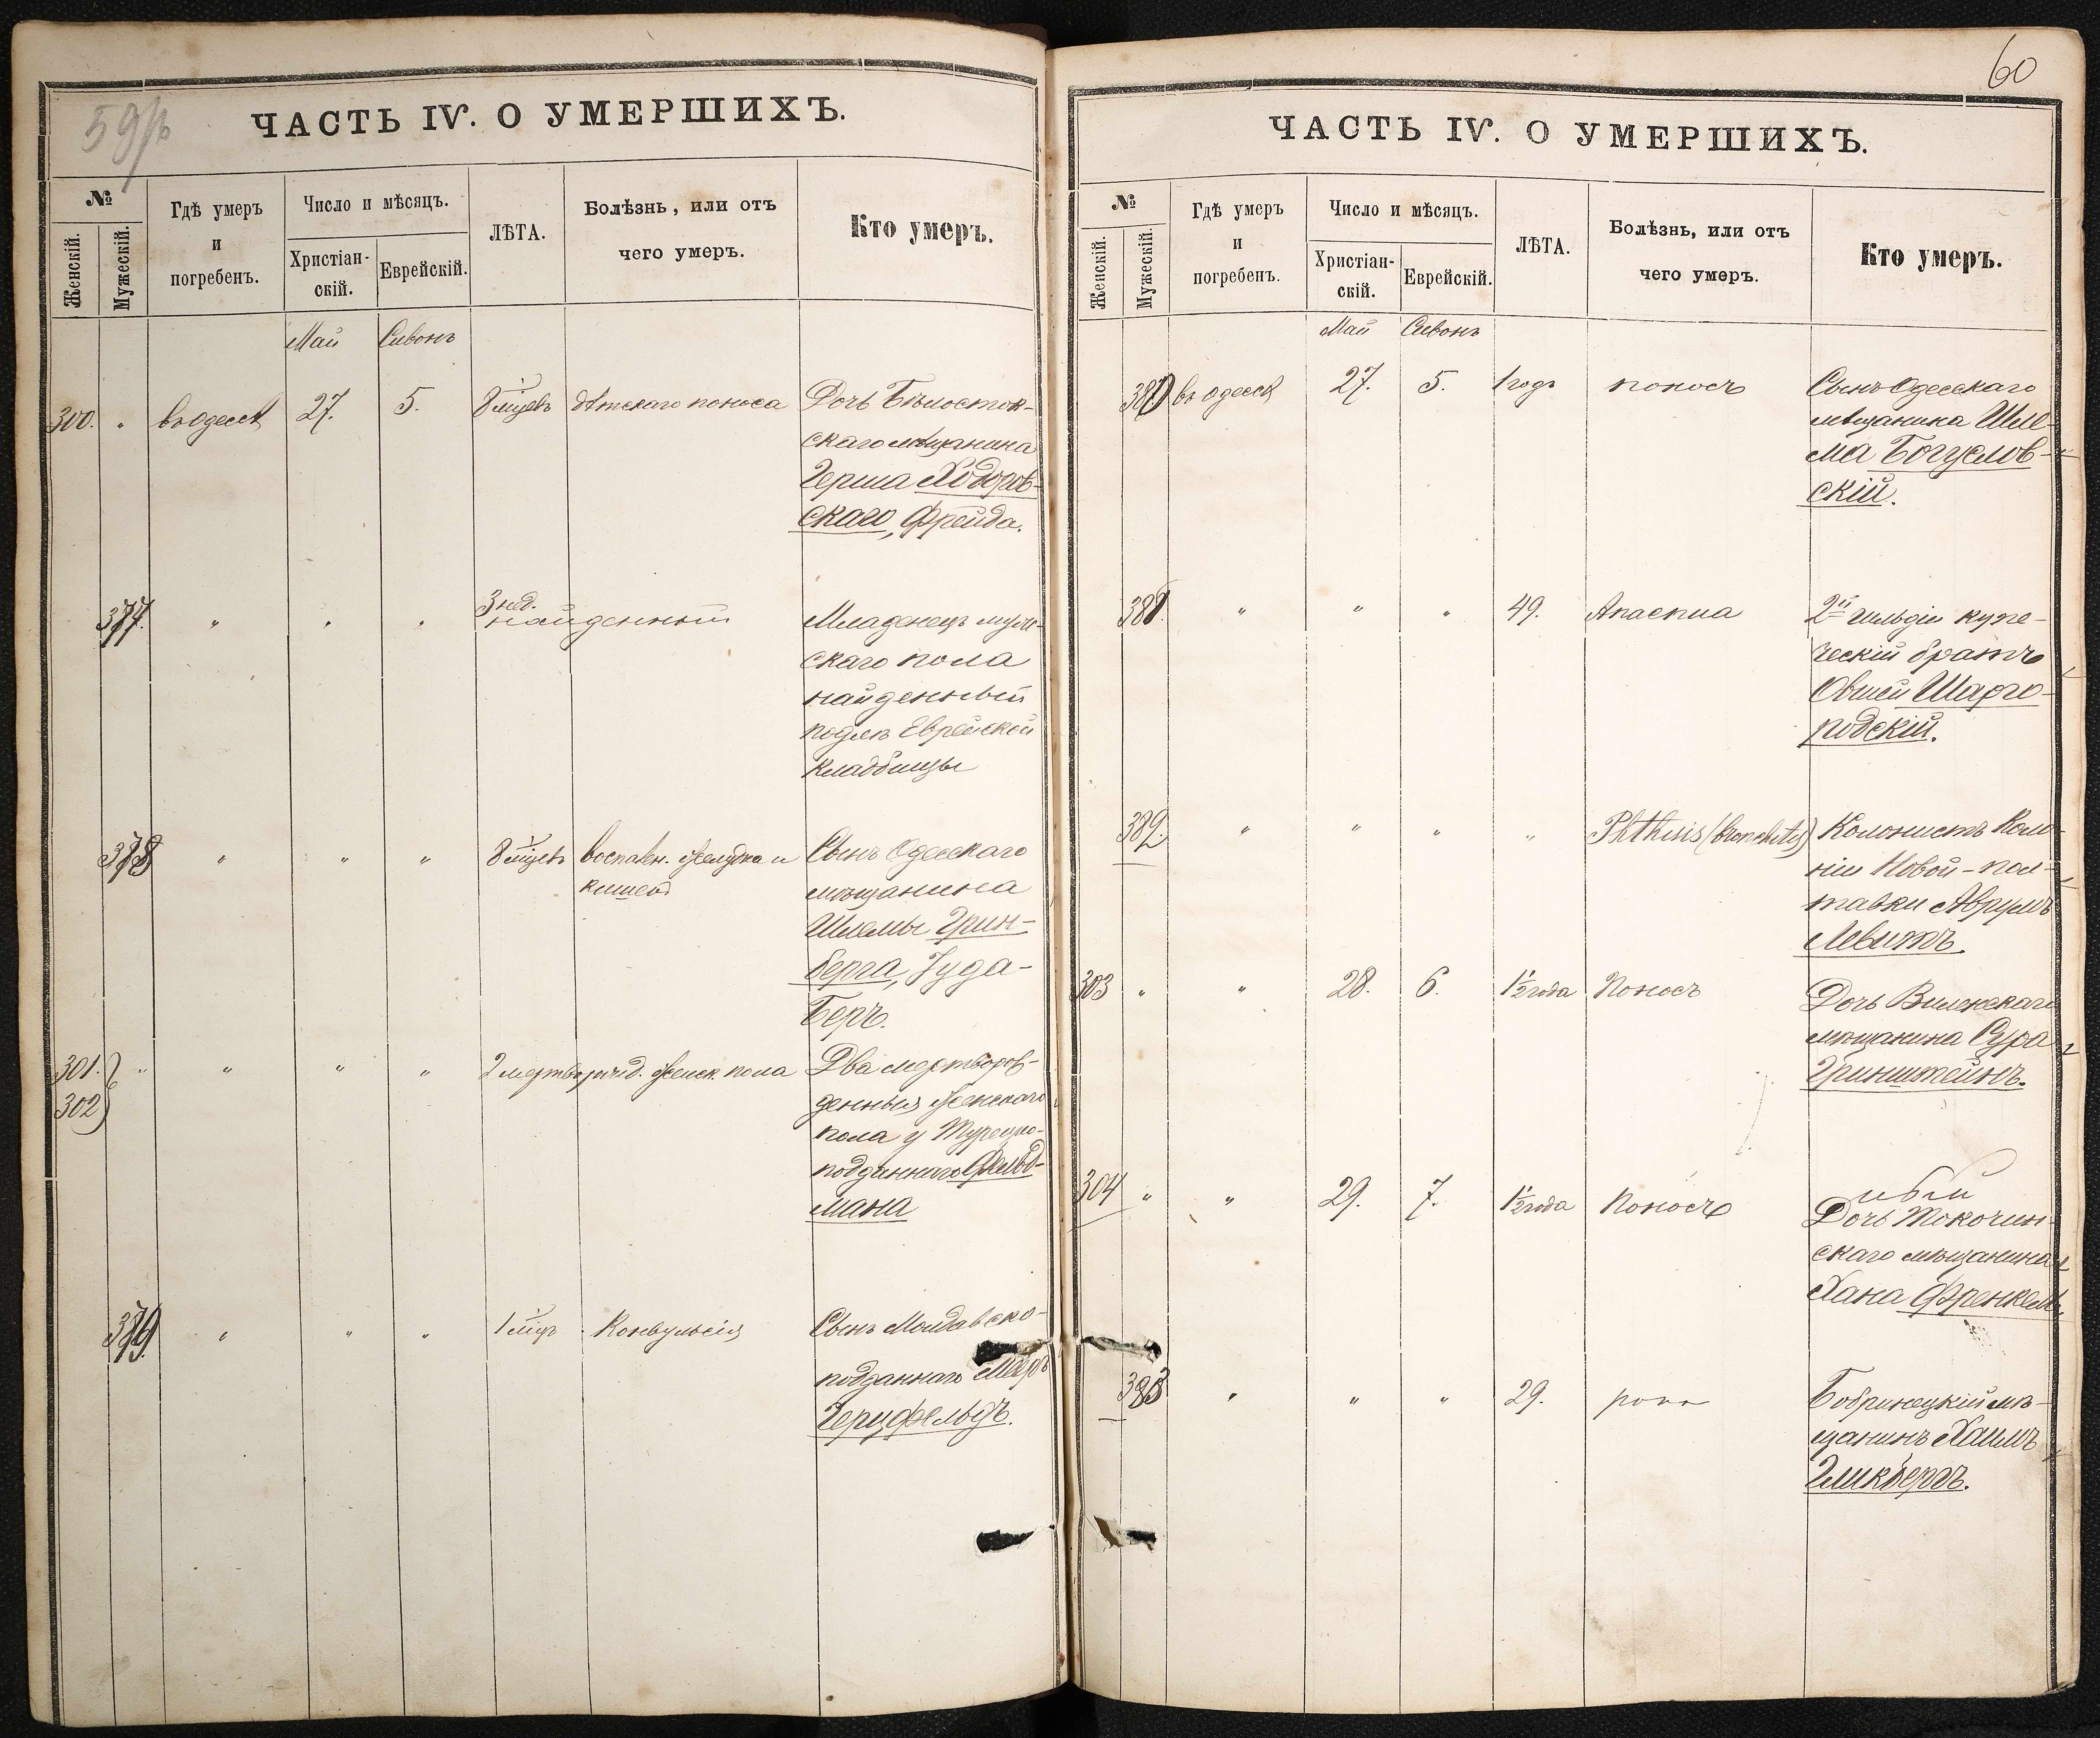 ЧАСТЬ IV. О УМЕРШИХЪ.
№
Женскій.
Мужескій.
Гдѣ умеръ
и
погребенъ.
Число и мѣсяцъ.
Христіан-
скій.
Еврейскій.
ЛѢТА.
Болѣзнь, или отъ
чего умеръ.
Кто умеръ.
Май Сивонъ
300. " въ Одессѣ 27. 5. 8 мѣцевъ дѣтскаго поноса Дочь Бѣлосток-
скаго мѣщанина
Герша Ходоров-
скаго, Фрейда.
377. " " " 3 нед. найденный Младенецъ муж-
скаго пола
найденный
подлѣ Еврейской
кладбищы
378 " " " 8 мѣцевъ воспален. желудка и Сынъ Одесскаго
кишекъ мѣщанина
Шлемы Грин-
берга, Іуда-
Беръ.
301. " " " " 2 мертворожд. женск. пола Два мертворож-
302 денныя женскаго
пола у Турецко-
подданнаго Фельд-
мана
379. " " " 1 мѣцъ Конвульсія Сынъ Молдавско-
подданнаго Меер
Герцфельдъ.
60
ЧАСТЬ IV. О УМЕРШИХЪ.
№
Женскій.
Мужескій.
Гдѣ умеръ
и
погребенъ.
Число и мѣсяцъ.
Христіан-
скій.
Еврейскій.
ЛѢТА.
Болѣзнь, или отъ
чего умеръ.
Кто умеръ.
Май Сивонъ
380 въ Одессѣ 27. 5. 1 годъ поносъ Сынъ Одесскаго
мѣщанина Шле-
ма Богуслов-
скій.
381. " " " 49. Апаспиа 2й гильдіи купе-
ческій братъ
Овшей Шарго-
родскій.
382. " " " " Phthisis (bronchitis) Колонистъ Коло-
ніи Новой-Пол-
тавки Аврумъ
Левитъ.
303 " " 28. 6. 1½ года Поносъ Дочь Виленскаго
мѣщанина Сура
Гринштейнъ.
304 " " 29. 7. 1½ года Поносъ Дочь Токочин-
скаго мѣщанина
Хана Френкель.
383 " " " 29. Бобринецкій мѣ-
щанинъ Хаимъ
Гликбергъ.